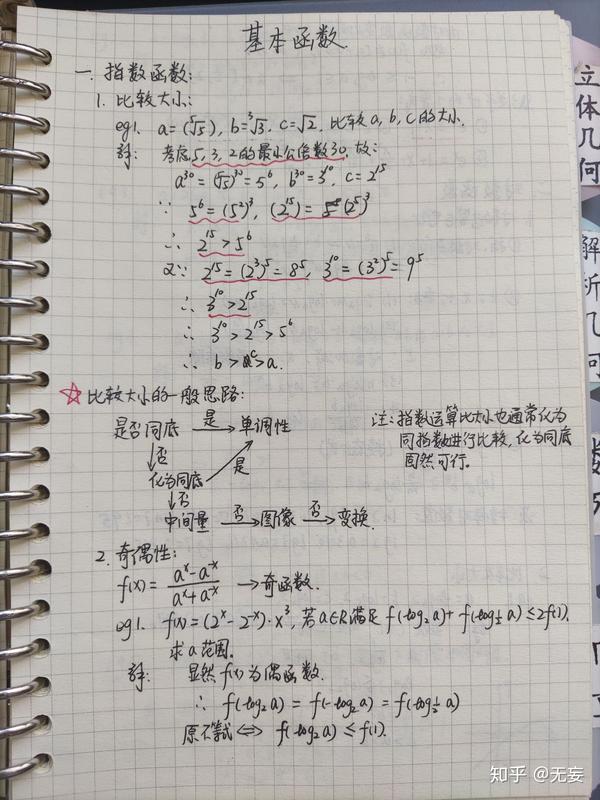 基本函数
一. 指数函数:
1. 比较大小:
eg1. a=(⁵√5), b=³√3, c=√2, 比较a, b, c的大小.
解: 考虑5,3,2的最小公倍数30, 故:
a³⁰=(⁵√5)³⁰=5⁶, b³⁰=3¹⁰, c=2¹⁵
∵ 5⁶=(5²)³, (2¹⁵)=(2⁵)³
∴ 2¹⁵>5⁶
又∵ 2¹⁵=(2³)⁵=8⁵, 3¹⁰=(3²)⁵=9⁵
∴ 3¹⁰>2¹⁵
∴ 3¹⁰>2¹⁵>5⁶
∴ b>c>a.
☆比较大小的一般思路:
是否同底 是→ 单调性
↓否
化为同底 是
↓否
中间量 否→ 图像 否→ 变换.
注: 指数运算比大小也通常化为
同指数进行比较, 化为同底
固然可行.
2. 奇偶性:
f(x)=(aˣ-a⁻ˣ)/(aˣ+a⁻ˣ) →奇函数.
eg1. f(x)=(2ˣ-2⁻ˣ)·x³, 若a∈R满足 f(log₂a)+f(log½a)≤2f(1).
求a范围.
解: 显然f(x)为偶函数.
∴ f(log₂a)=f(-log₂a)=f(log½a)
原不等式⇔ f(log₂a)≤f(1).
立体几何
解析几何
知乎 @无妄